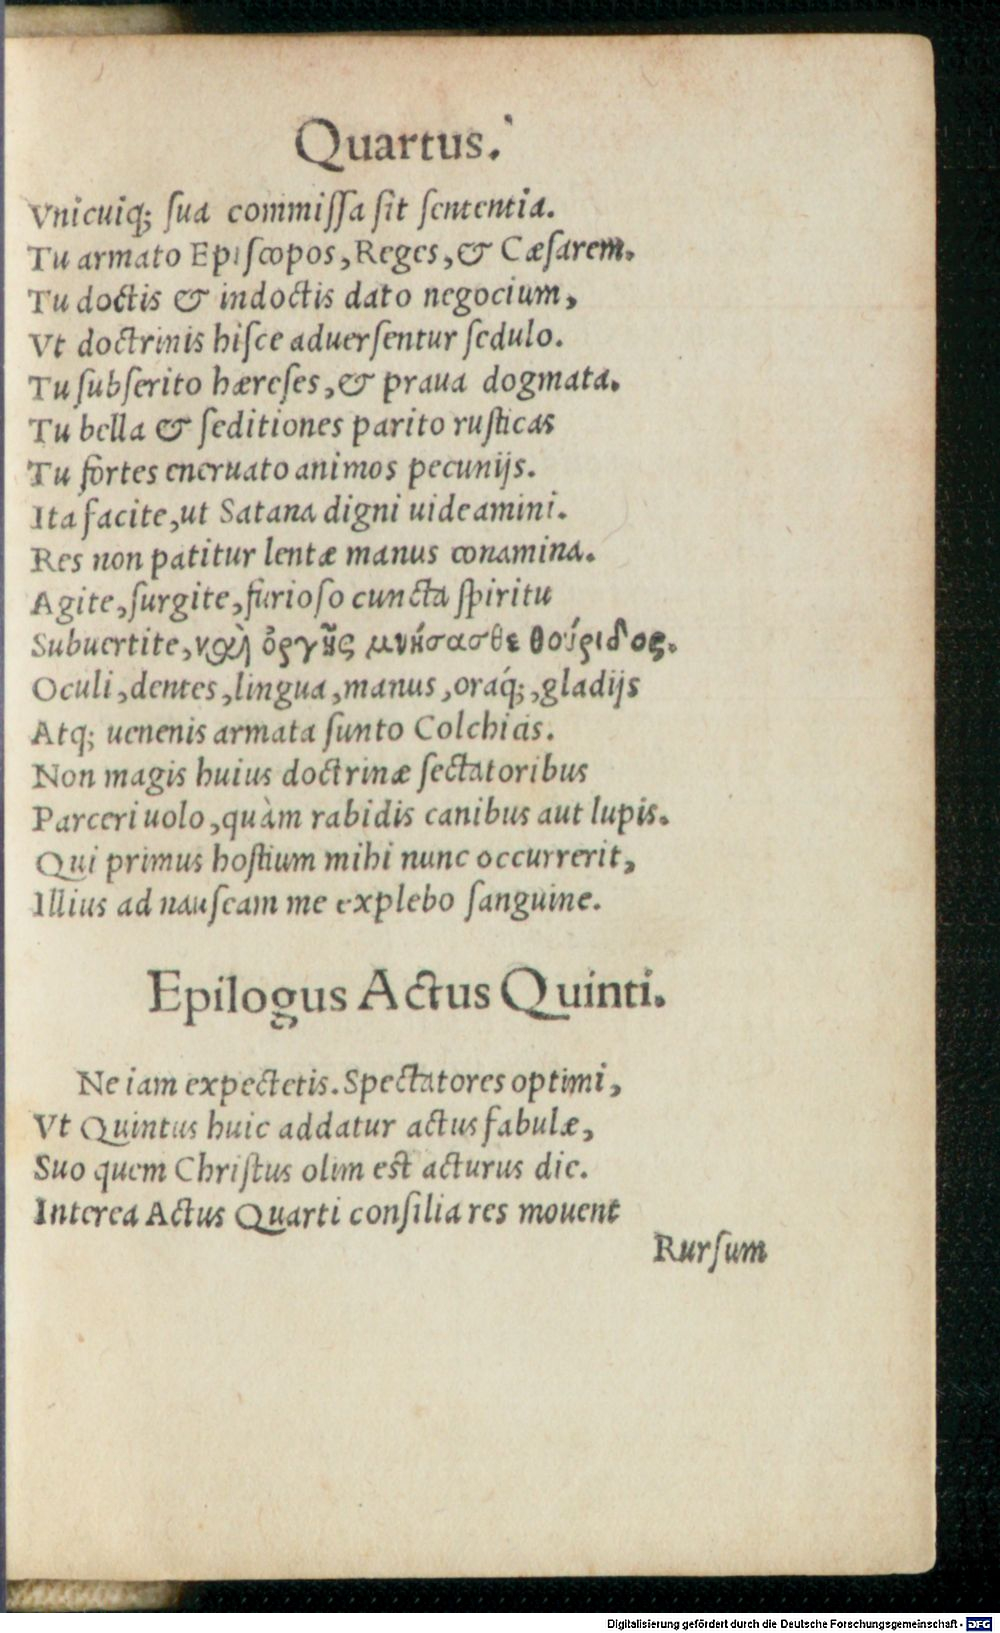 Quartus.
Vnicuiq; ſua commiſſa ſit ſententia.
Tu armato Epiſcopos, Reges, & Cæſarem.
Tu doctis & indoctis dato negocium,
Vt doctrinis hiſce aduerſentur ſedulo.
Tu ſubſerito hæreſes, & praua dogmata.
Tu bella & ſeditiones parito ruſticas
Tu fortes eneruato animos pecunijs.
Ita facite, ut Satana digni uideamini.
Res non patitur lentæ manus conamina.
Agite, ſurgite, furioſo cuncta ſpiritu
Subuertite, καὶ ὀργῆς μνήσασθε θούριδος.
Oculi, dentes, lingua, manus, oráq;, gladijs
Atq; uenenis armata ſunto Colchicis.
Non magis huius doctrinæ ſectatoribus
Parceri uolo, quàm rabidis canibus aut lupis.
Qui primus hoſtium mihi nunc occurrerit,
Illius ad nauſeam me explebo ſanguine.
Epilogus Actus Quinti.
Ne iam expectetis. Spectatores optimi,
Vt Quintus huic addatur actus fabulæ,
Suo quem Chriſtus olim eſt acturus die.
Interea Actus Quarti conſilia res mouent
Rurſum
Digitalisierung gefördert durch die Deutsche Forschungsgemeinschaft - DFG